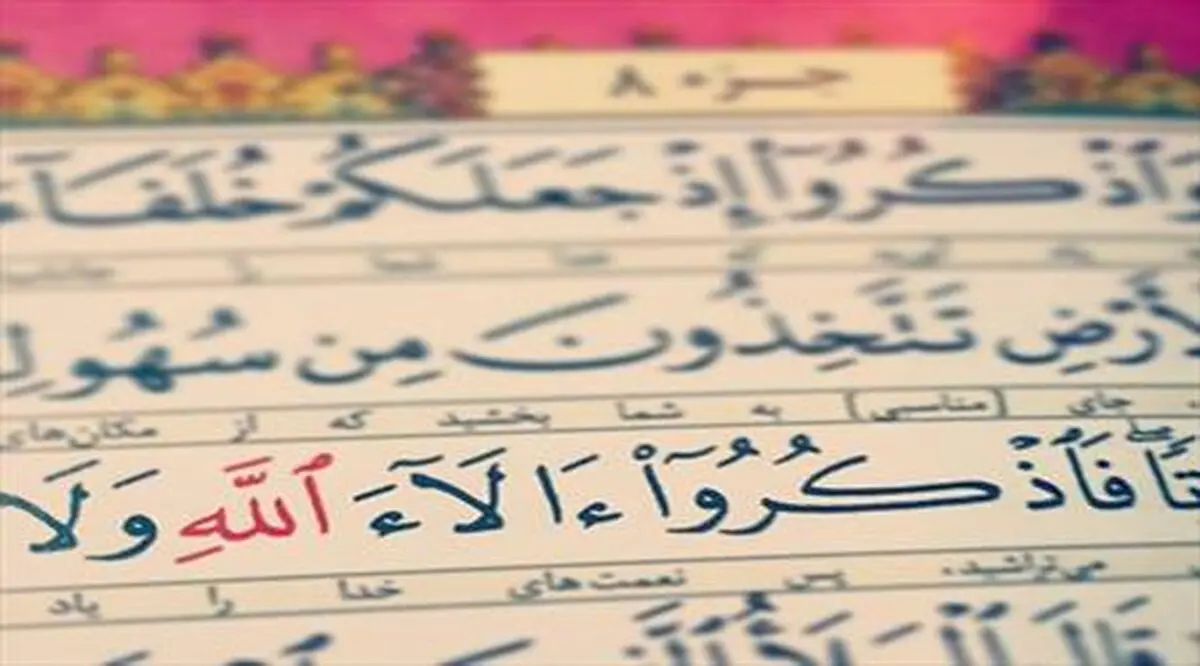 جزء ۸
وَٱذۡكُرُوٓاْ إِذۡ جَعَلَكُمۡ خُلَفَآءَ
لۡأَرۡضِ تَتَّخِذُونَ مِن سُهُولِ
جای (مناسبی) به شما بخشید که از مکان‌های
فَٱذۡكُرُوٓاْ ءَالَآءَ ٱللَّهِ وَلَا
می‌تراشید، پس نعمت‌های خدا را یاد
قَالَ ٱلۡمَلَأُ ٱلَّذ